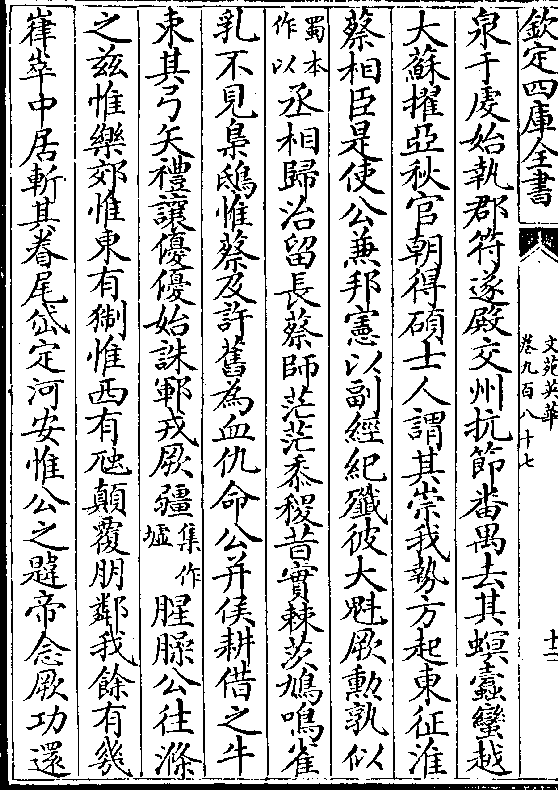 欽定四庫全書
文苑英華
卷九百八十七
十二
泉于虔始執郡符遂殿交州抗節番禺去其螟蠹蠻越
大蘇擢亞秋官朝得碩士人謂其崇我勢方起東征淮
蔡相臣是使公兼邦憲以副經紀殲彼大魁厥勲孰似
蜀本作以丞相歸治留長蔡師茫茫黍稷昔實棘茨鳩鳴雀
乳不見梟鴟惟蔡及許舊為血仇命公并侯耕借之牛
束其弓矢禮讓優優始誅鄆戎厥疆集作墟腥臊公往滌
之兹惟樂郊惟東有猘惟西有虺顛覆朋鄰我餘有幾
嵂崒中居斬其眷尾岱定河安惟公之韙帝念厥功還